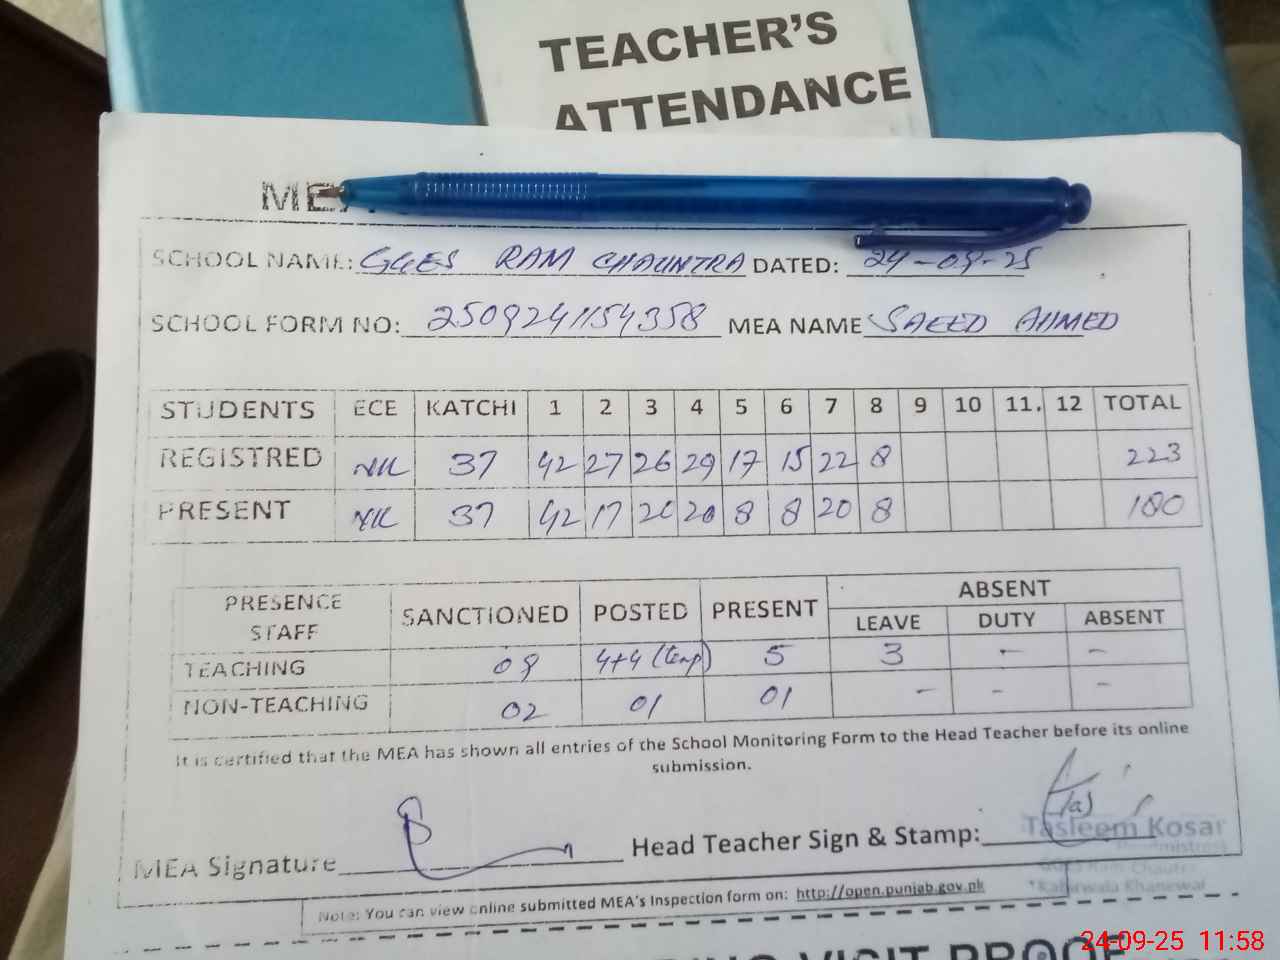 TEACHER'S
ATTENDANCE
SCHOOL NAME: GGES RAM CHAUNTRA DATED: 24-09-25
SCHOOL FORM NO: 2509241154358 MEA NAME SAEED AHMED
STUDENTS ECE KATCHI 1 2 3 4 5 6 7 8 9 10 11. 12 TOTAL
REGISTRED NIL 37 42 27 26 29 17 15 22 8 223
PRESENT NIL 37 42 17 20 20 8 8 20 8 180
PRESENCE STAFF SANCTIONED POSTED PRESENT ABSENT
LEAVE DUTY ABSENT
TEACHING 08 4+4 (temp) 5 3 - -
NON-TEACHING 02 01 01 - - -
It is certified that the MEA has shown all entries of the School Monitoring Form to the Head Teacher before its online
submission.
MEA Signature Head Teacher Sign & Stamp:
Tasleem Kosar
Kabirwala Khanewal
Note: You can view online submitted MEA's Inspection form on: http://open.punjab.gov.pk
VISIT PROOF
24-09-25 11:58